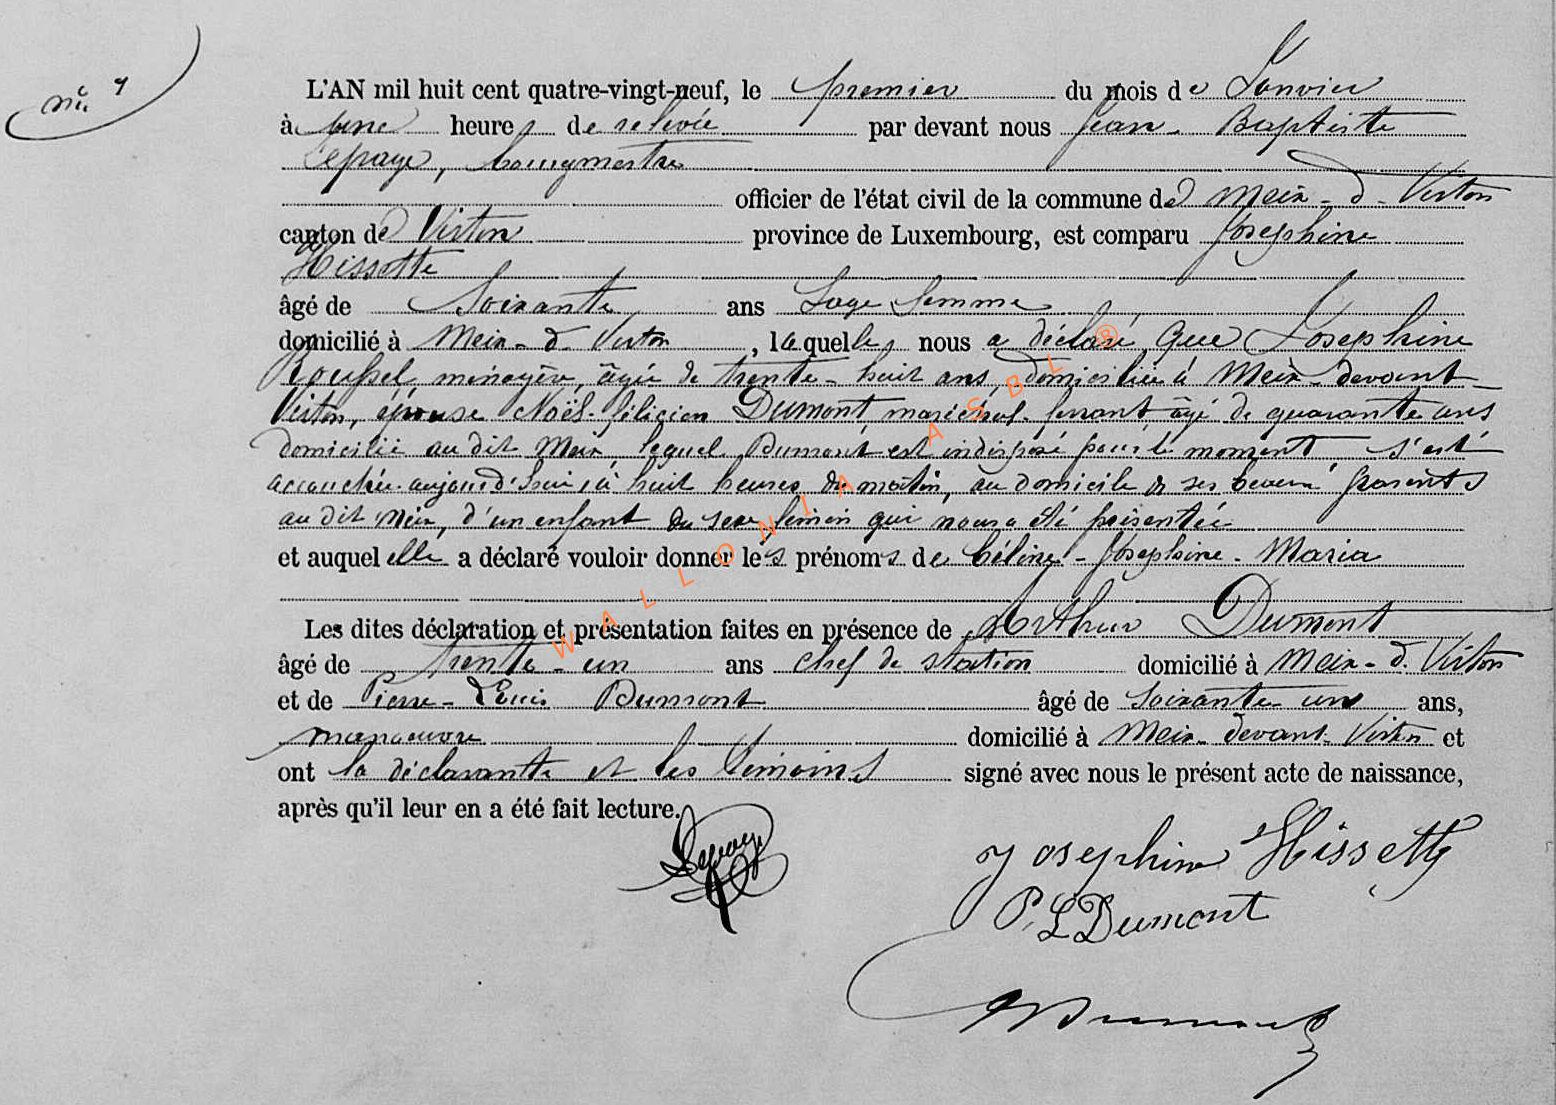 N° 1
L'AN mil huit cent quatre-vingt-neuf, le premier du mois de Janvier
à une heure de relevée par devant nous Jean-Baptiste
Lepage, bourgmestre
officier de l'état civil de la commune de Meix-d-Virton
canton de Virton province de Luxembourg, est comparu Joséphine
Hissette
âgé de Soixante ans Sage femme
domicilié à Meix-d-Virton, laquelle nous a déclaré que Joséphine
Roussel, ménagère, âgée de trente-huit ans, domiciliée à Meix-devant-
Virton, épouse Noël-félicien Dumont, maréchal-ferrant âgé de quarante ans
domicilié au dit Meix, lequel Dumont est indisposé pour le moment s'est
accouchée aujourd'hui, à huit heures du matin, au domicile de ses beaux parents
au dit Meix, d'un enfant du sexe féminin qui nous a été présentée
et auquel elle a déclaré vouloir donner les prénoms de Céline-Joséphine-Maria
Les dites déclaration et présentation faites en présence de Arthur Dumont
âgé de trente-un ans chef de station domicilié à Meix-d-Virton
et de Pierre-Louis Dumont âgé de soixante un ans,
manoeuvre domicilié à Meix-devant-Virton et
ont la déclarante et les témoins signé avec nous le présent acte de naissance,
après qu'il leur en a été fait lecture.
Lepage
Joséphine Hissette
P. L Dumont
ADumont
WALLONIA ASBL ®